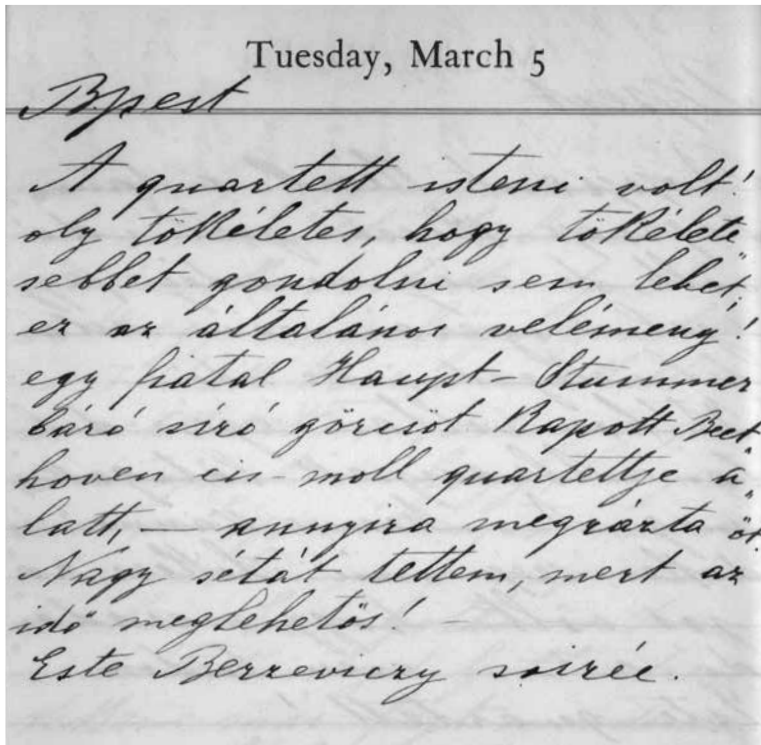 Tuesday, March 5
Bpest
A quartett isteni volt!
oly tökéletes, hogy tökélete"
sebbet gondolni sem lehet;
ez az általános vélémény!
egy fiatal Haupt-Stummer
báró síró görcsöt kapott Beet"
hoven cis-moll quartettje a"
latt, — annyira megrázta őt.
Nagy sétát tettem, mert az
idő meglehetős! —
Este Berzeviczy soirée.